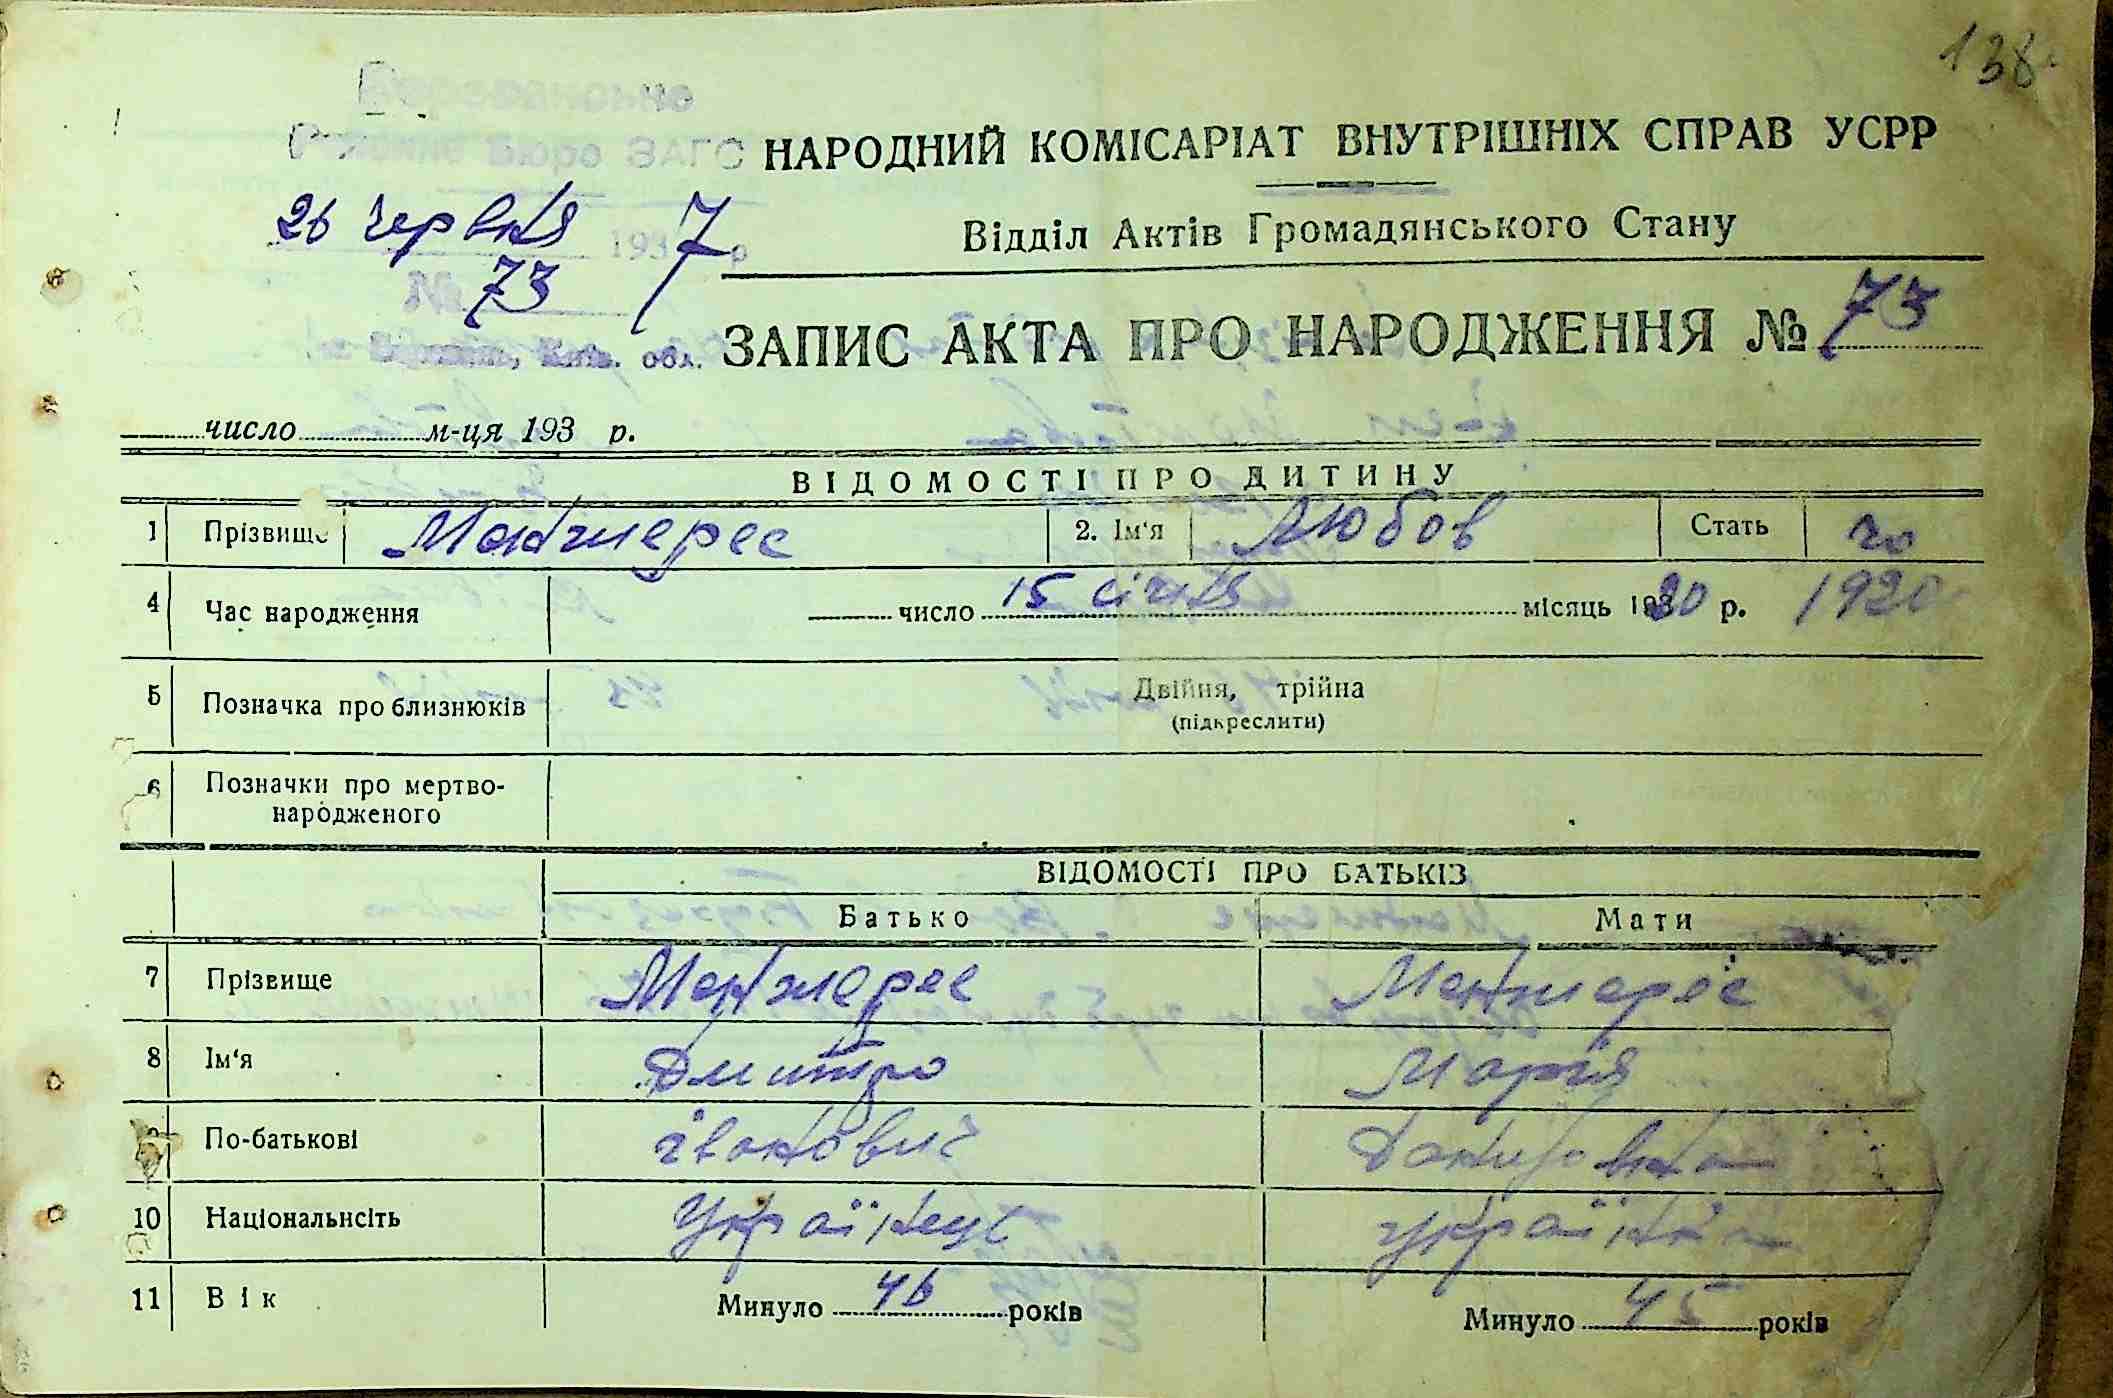 138
Бюро ЗАГС
НАРОДНИЙ КОМІСАРІАТ ВНУТРІШНІХ СПРАВ УСРР
26 червня 1937 р
Відділ Актів Громадянського Стану
№ 73
ЗАПИС АКТА ПРО НАРОДЖЕННЯ № 73
Київ. обл.
число м-ця 193 р.
ВІДОМОСТІ ПРО ДИТИНУ
1 Прізвище 2. Ім'я Любов Стать жо
4 Час народження число 15 січня місяць 1920 р. 1920
5 Позначка про близнюків Двійня, трійна
(підкреслити)
6 Позначки про мертво-
народженого
ВІДОМОСТІ ПРО БАТЬКІВ
Батько Мати
7 Прізвище
8 Ім'я Дмитро Марія
9 По-батькові іванович Даниловна
10 Національність Українець українка
11 Вік Минуло 46 років Минуло 45 років